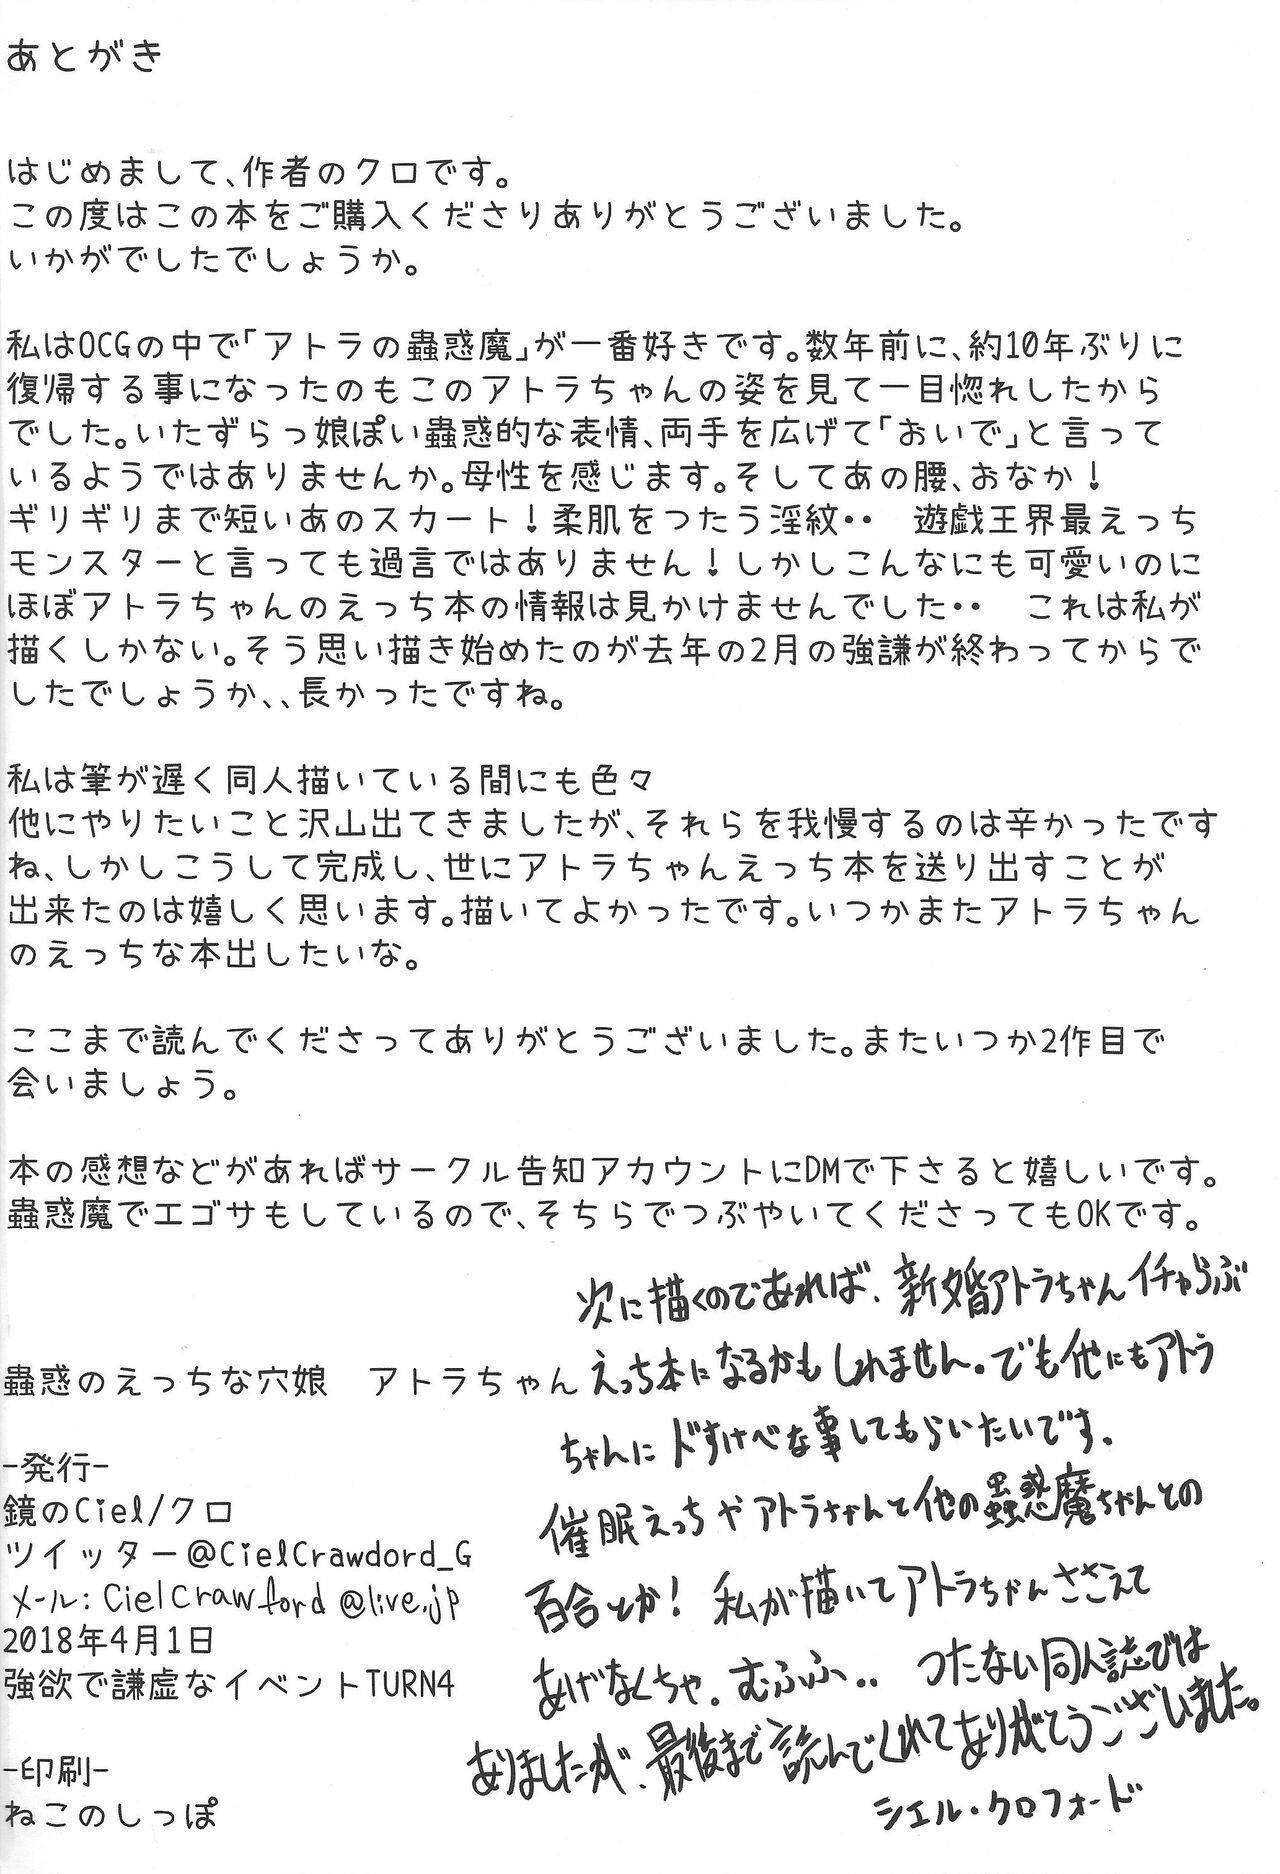 あとがき
はじめまして、作者のクロです。
この度はこの本をご購入くださりありがとうございました。
いかがでしたでしょうか。
私はOCGの中で「アトラの蟲惑魔」が一番好きです。数年前に、約10年ぶりに
復帰する事になったのもこのアトラちゃんの姿を見て一目惚れしたから
でした。いたずらっ娘ぽい蟲惑的な表情、両手を広げて「おいで」と言って
いるようではありませんか。母性を感じます。そしてあの腰、おなか！
ギリギリまで短いあのスカート！柔肌をつたう淫紋・・　遊戯王界最えっち
モンスターと言っても過言ではありません！しかしこんなにも可愛いのに
ほぼアトラちゃんのえっち本の情報は見かけませんでした・・　これは私が
描くしかない。そう思い描き始めたのが去年の2月の強謙が終わってからで
したでしょうか、、長かったですね。
私は筆が遅く同人描いている間にも色々
他にやりたいこと沢山出てきましたが、それらを我慢するのは辛かったです
ね、しかしこうして完成し、世にアトラちゃんえっち本を送り出すことが
出来たのは嬉しく思います。描いてよかったです。いつかまたアトラちゃん
のえっちな本出したいな。
ここまで読んでくださってありがとうございました。またいつか2作目で
会いましょう。
本の感想などがあればサークル告知アカウントにDMで下さると嬉しいです。
蟲惑魔でエゴサもしているので、そちらでつぶやいてくださってもOKです。
次に描くのであれば、新婚アトラちゃんイチャらぶ
えっち本になるかもしれません。でも他にもアトラ
ちゃんにドすけべな事してもらいたいです。
催眠えっちやアトラちゃんと他の蟲惑魔ちゃんとの
百合とか！私が描いてアトラちゃんささえて
あげなくちゃ。むふふ..　つたない同人誌では
ありましたが、最後まで読んでくれてありがとうございました。
シエル・クロフォード
蟲惑のえっちな穴娘　アトラちゃん
-発行-
鏡のCiel/クロ
ツイッター@CielCrawdord_G
メール: CielCrawford@live.jp
2018年4月1日
強欲で謙虚なイベントTURN4
-印刷-
ねこのしっぽ